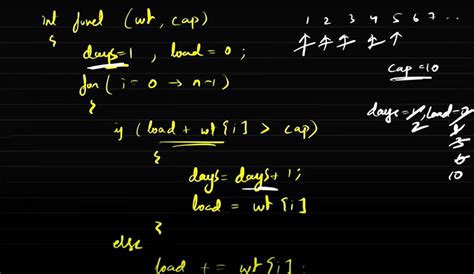 int func1 (wt, cap)
{
days=1, load = 0;
for( i = 0 → n-1)
{
if (load + wt[i] > cap)
{
days = days + 1;
load = wt[i]
}
else
load += wt[i];
1 2 3 4 5 6 7 ..
cap = 10
days = 1, load =
2
3
6
10